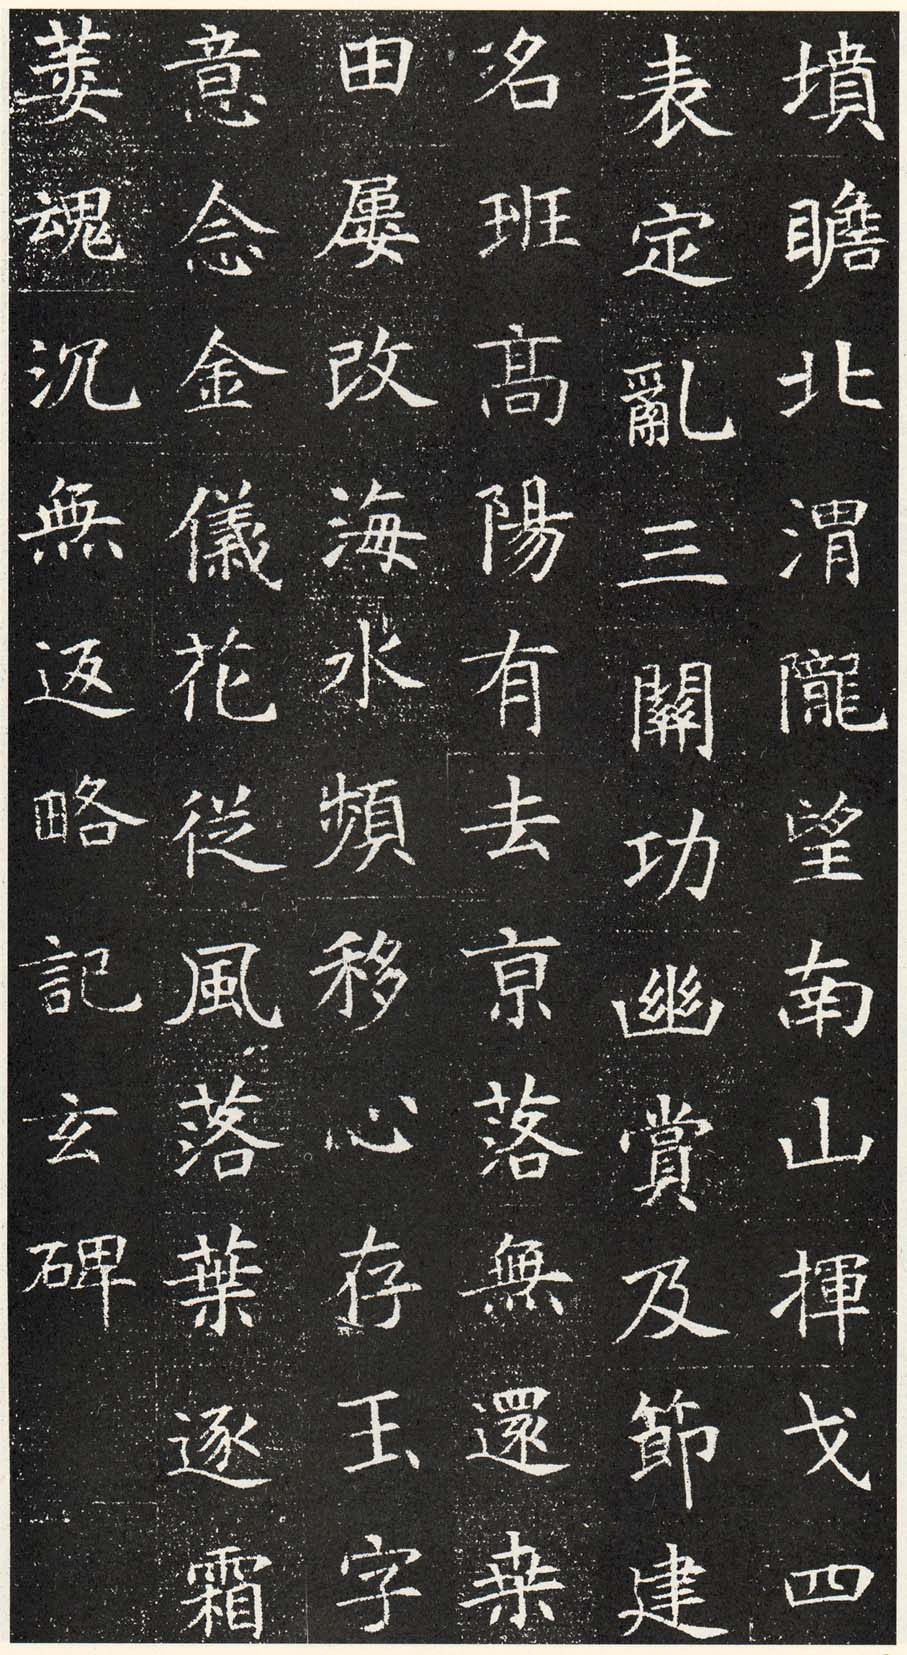 墳瞻北渭隴望南山揮戈四
表定亂三關功幽賞及節建
名班高陽有去京落無還桒
田屢改海水頻移心存玉字
意念金儀花從風落葉逐霜
萎魂沉無返略記玄碑